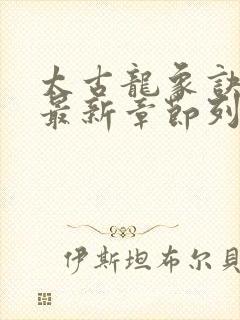 太古龍象訣
最新章節列
伊斯坦布尔貝